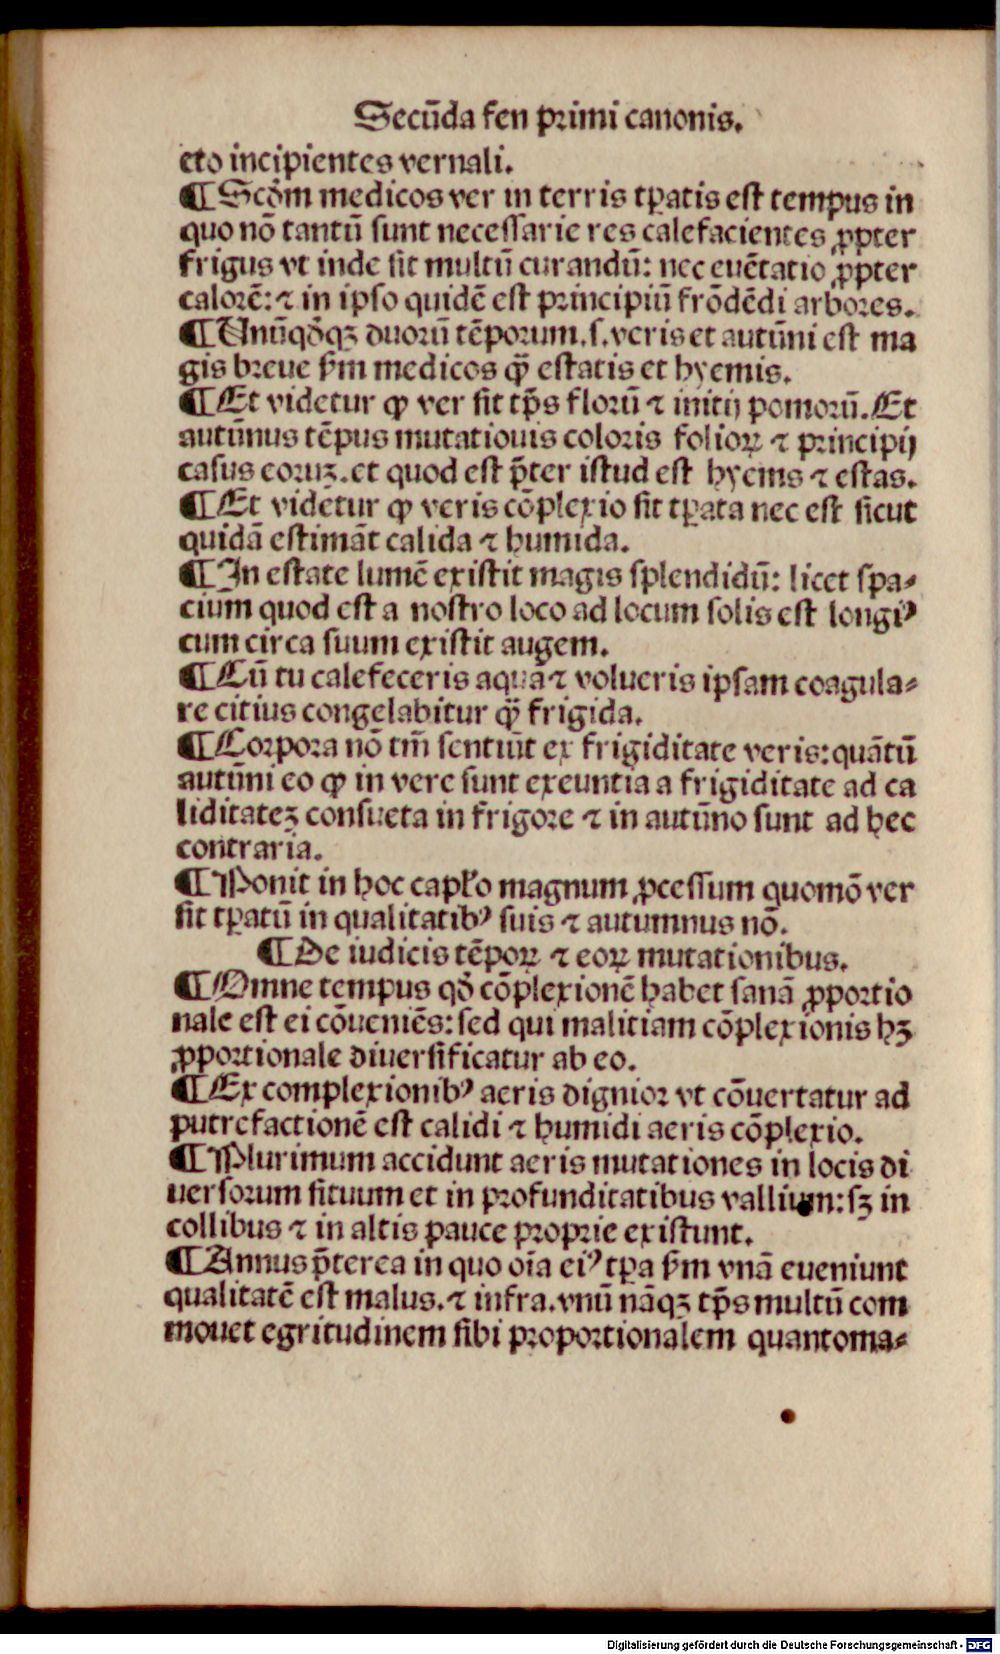 Secūda fen primi canonis.
cto incipientes vernali.
¶ Scd̄m medicos ver in terris tꝑatis est tempus in
quo nō tantū sunt necessarie res calefacientes ꝓpter
frigus vt inde sit multū curandū: nec euētatio ꝓpter
calorē: ⁊ in ipso quidē est principiū frōdēdi arbores.
¶ Unūqd̄qꝫ duorū tēporum.s.veris et autūni est ma
gis breue ẜm medicos qꝫ̄ estatis et hyemis.
¶ Et videtur ꝙ ver sit tp̄s florū ⁊ initij pomorū. Et
autūnus tēpus mutatiouis coloris folioꝝ ⁊ principij
casus eoruꝫ. et quod est p̄ter istud est hyems ⁊ estas.
¶ Et videtur ꝙ veris cōplexio sit tꝑata nec est sicut
quidā estimāt calida ⁊ humida.
¶ In estate lumē existit magis splendidū: licet spa⸗
cium quod est a nostro loco ad locum solis est longiꝰ
cum circa suum existit augem.
¶ Cū tu calefeceris aquā ⁊ volueris ipsam coagula⸗
re citius congelabitur qꝫ̄ frigida.
¶ Corpora nō tm̄ sentiūt ex frigiditate veris: quātū
autūni eo ꝙ in vere sunt exeuntia a frigiditate ad ca
liditateꝫ consueta in frigore ⁊ in autūno sunt ad hec
contraria.
¶ Ponit in hoc capl̓o magnum ꝓcessum quomō ver
sit tꝑatū in qualitatibꝰ suis ⁊ autumnus nō.
¶ De iudicis tēpoꝝ ⁊ eoꝝ mutationibus.
¶ Omne tempus qd̄ cōplexionē habet sanā ꝓportio
nale est ei cōueniēs: sed qui malitiam cōplexionis hꝫ
ꝓportionale diuersificatur ab eo.
¶ Ex complexionibꝰ aeris dignior vt cōuertatur ad
putrefactionē est calidi ⁊ humidi aeris cōplexio.
¶ Plurimum accidunt aeris mutationes in locis di
uersorum situum et in profunditatibus vallium: sꝫ in
collibus ⁊ in altis pauce proprie existunt.
¶ Annus p̄terea in quo oīa eiꝰ tꝑa ẜm vnā eueniunt
qualitatē est malus. ⁊ infra. vnū nāqꝫ tp̄s multū com
mouet egritudinem sibi proportionalem quantoma⸗
Digitalisierung gefördert durch die Deutsche Forschungsgemeinschaft - DFG